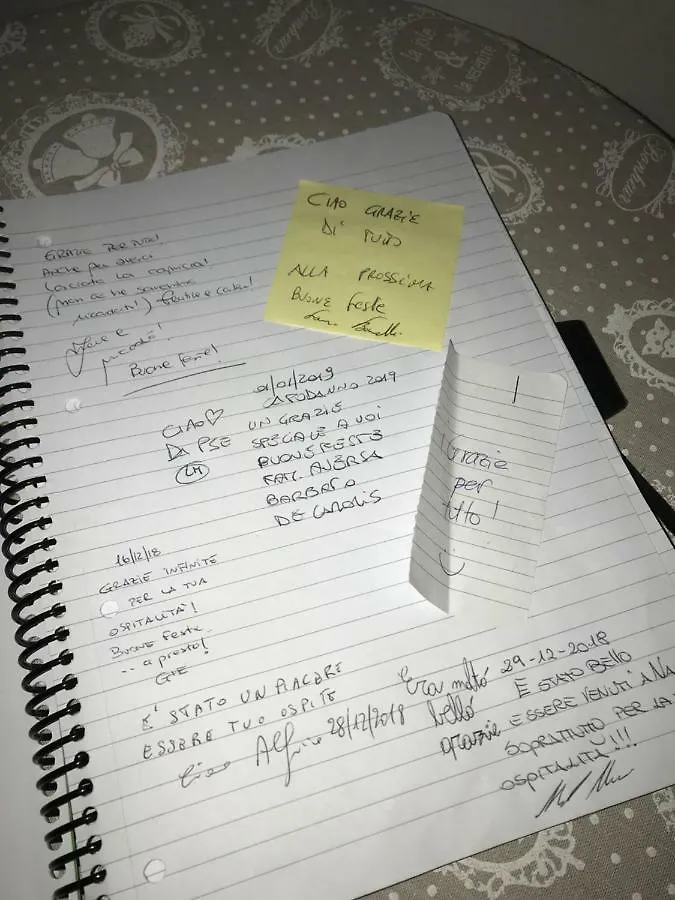 Bonheur
la jolie
&
la séduire
Bonheur
GRAZIE PER TUTTO!
Anche per averci
lasciato la
(non ce ne saremmo
Buone Feste!
CIAO GRAZIE
DI TUTTO
ALLA PROSSIMA
BUONE feste
01/01/2019
CAPODANNO 2019
CIAO♡ UN GRAZIE
DA PSE SPECIALE A VOI
BUONE FESTE
FAM. AVERSA
BARBATO
DE CAROLIS
Grazie
per
tutto!
16/12/18
GRAZIE INFINITE
PER LA TUA
OSPITALITÀ!
BUONE Feste
-- a presto!
E' STATO UN PIACERE
ESSERE TUO OSPITE
Ciao 28/12/2018
Era molto
bello
grazie
29-12-2018
E STATO BELLO
ESSERE VENUTI A NA
SOPRATUTTO PER LA
OSPITALITÀ!!!